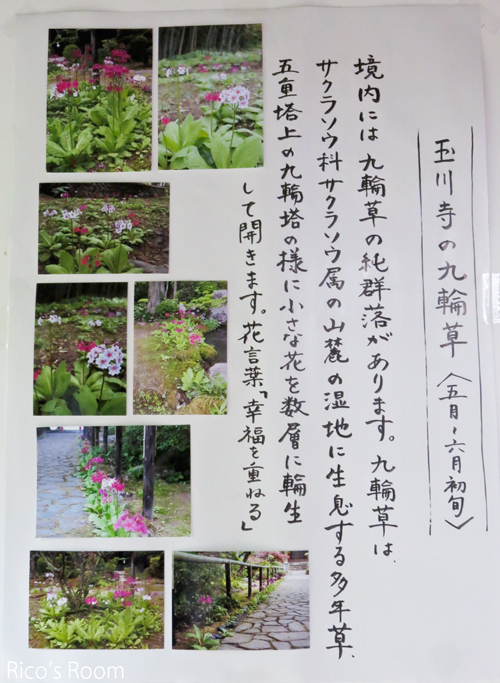 玉川寺の九輪草〈五月～六月初旬〉
境内には九輪草の純群落があります。九輪草は、
サクラソウ科サクラソウ属の山麓の湿地に生息する多年草、
五重塔上の九輪塔の様に小さな花を数層に輪生
して開きます。花言葉「幸福を重ねる」
Rico's Room